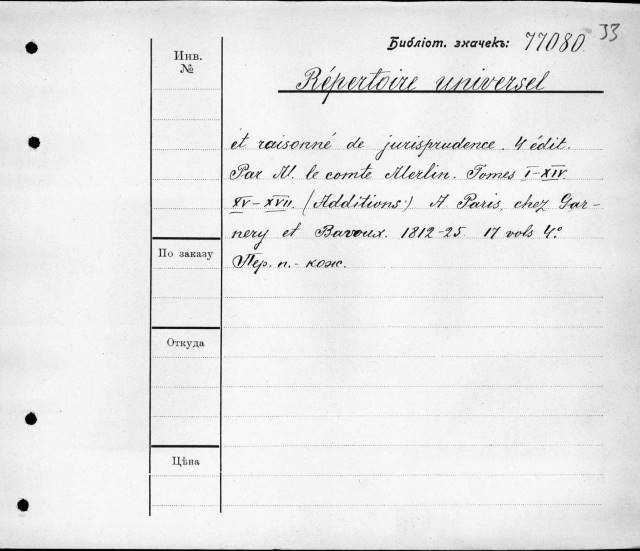 33
Библіот. значекъ: 77080.
Инв.
№
Répertoire universel
et raisonné de jurisprudence. 4 édit.
Par M. le comte Merlin. Tomes I-XIV.
XV-XVII. (Additions) A Paris, chez Gar-
nery et Bavoux. 1812-25. 17 vols 4°
Пер. п.- кож.
По заказу
Откуда
Цѣна